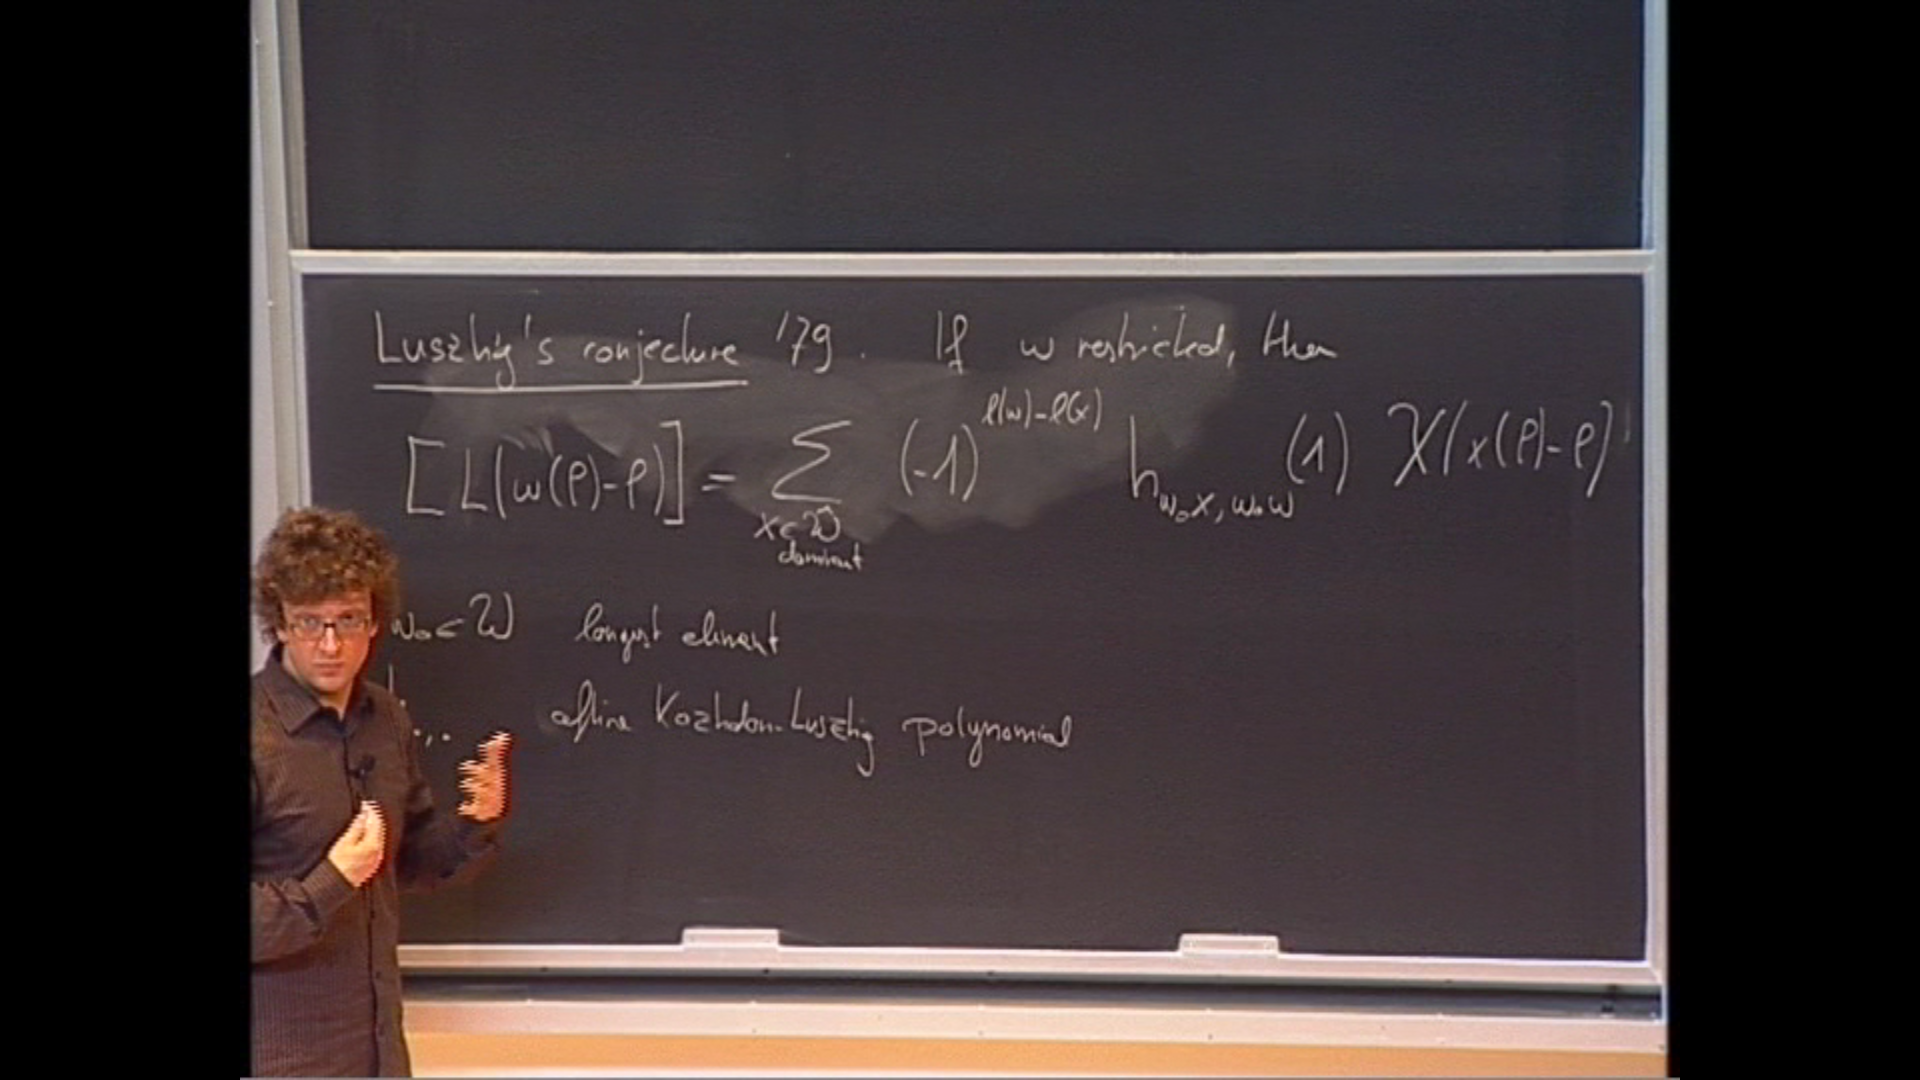 Lusztig's conjecture '79. If w restricted, then
[L(w(ρ)-ρ)] = Σ (-1)^{ℓ(w)-ℓ(x)} h_{w₀x, w₀w} (1) χ(x(ρ)-ρ)
x ∈ Ŵ
dominant
w₀ ∈ W longest element
affine Kazhdan-Lusztig polynomial